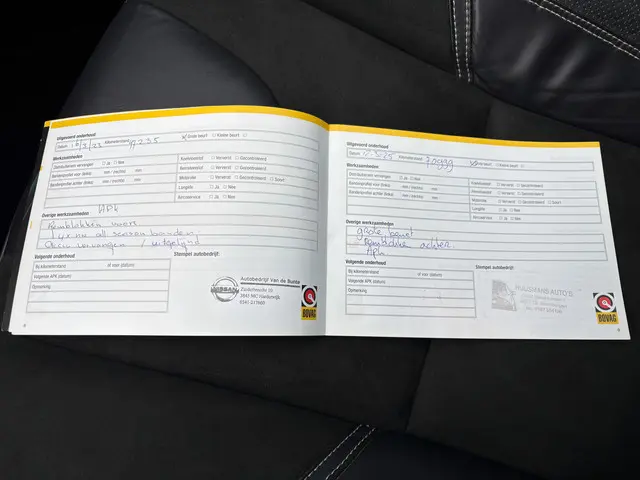 Uitgevoerd onderhoud
Datum Kilometerstand Grote beurt Kleine beurt
Werkzaamheden
Distributieriem vervangen Ja Nee
Bandenprofiel voor (links) mm / (rechts) mm
Bandenprofiel achter (links) mm / (rechts) mm
Koelvloeistof Ververst Gecontroleerd
Remvloeistof Ververst Gecontroleerd
Motorolie Ververst Gecontroleerd Soort:
Longlife Ja Nee
Aircoservice Ja Nee
Overige werkzaamheden
APK
Remblokken voor
4 x nw all season banden
vervangen / uitgelijnd
Volgende onderhoud
Bij kilometerstand of voor (datum)
Volgende APK (datum)
Opmerking
Stempel autobedrijf:
NISSAN
Autobedrijf Van de Bunte
3843 MC Harderwijk
BOVAG
Uitgevoerd onderhoud
Datum Kilometerstand Grote beurt Kleine beurt
Werkzaamheden
Distributieriem vervangen Ja Nee
Bandenprofiel voor (links) mm / (rechts) mm
Bandenprofiel achter (links) mm / (rechts) mm
Koelvloeistof Ververst Gecontroleerd
Remvloeistof Ververst Gecontroleerd
Motorolie Ververst Gecontroleerd Soort:
Longlife Ja Nee
Aircoservice Ja Nee
Overige werkzaamheden
grote beurt
achter
APK
Volgende onderhoud
Bij kilometerstand of voor (datum)
Volgende APK (datum)
Opmerking
Stempel autobedrijf:
HUIJSMANS AUTO'S
BOVAG